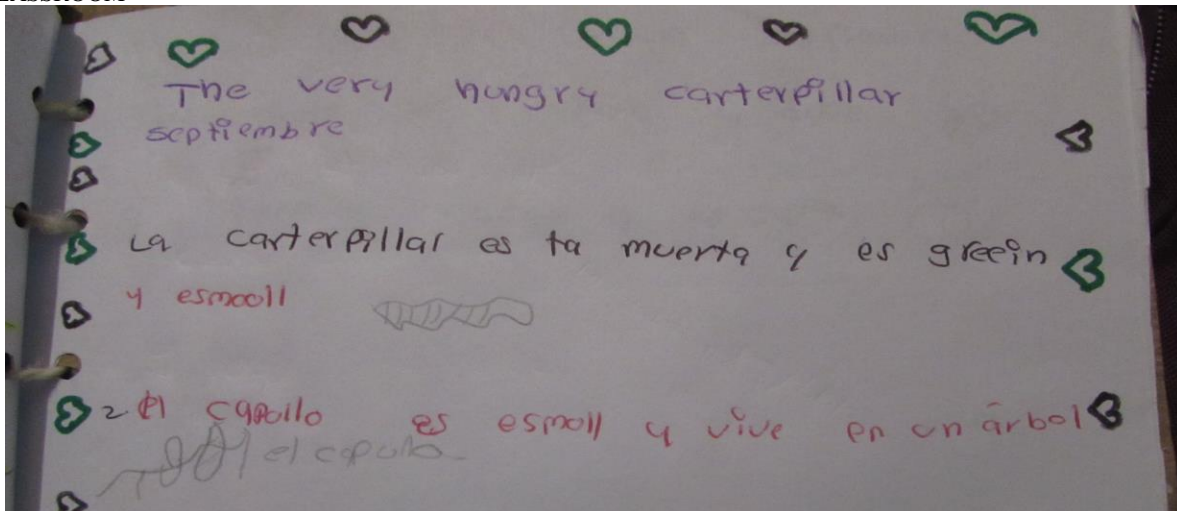 The very hungry carterpillar
septiembre
La carterpillar es ta muerta y es greein
y esmooll
2 el capullo es esmoll y vive en un árbol
el capullo